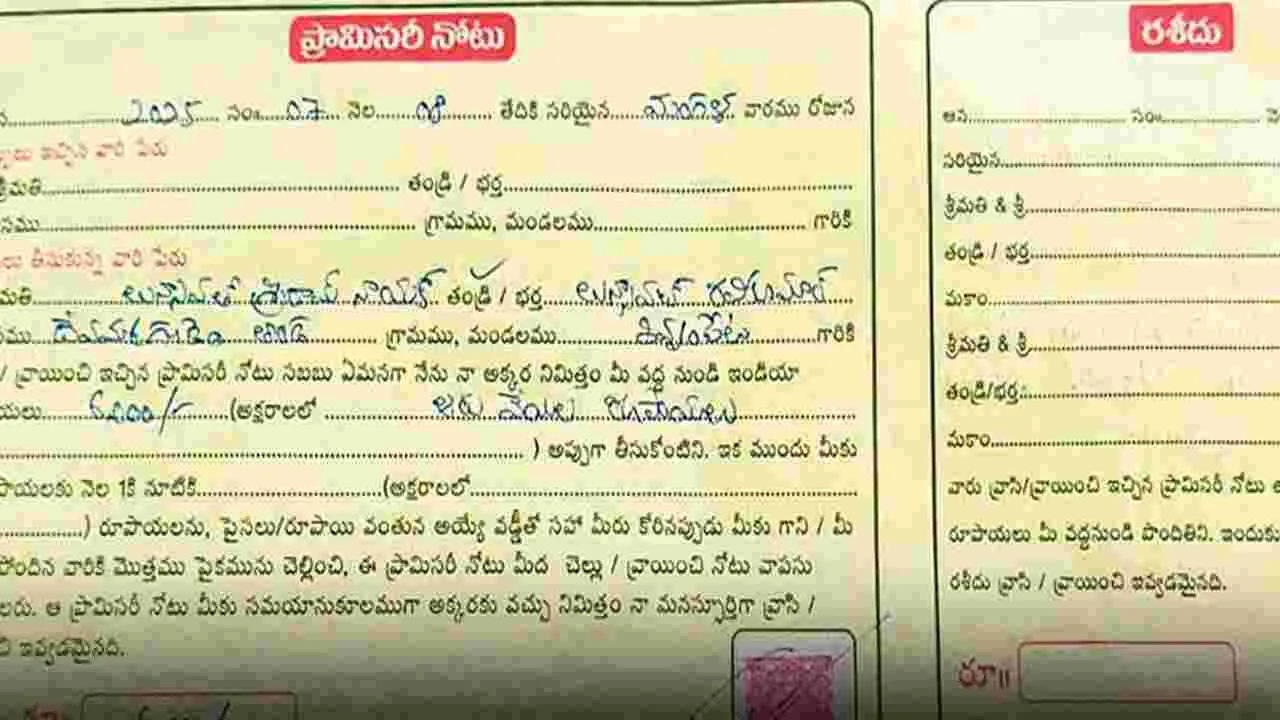 ప్రామిసరీ నోటు
2025 సం॥ 07 నెల 08 తేదికి సరియైన మంగళ వారము రోజున
ఇచ్చిన వారి పేరు
శ్రీమతి తండ్రి / భర్త
గ్రామము, మండలము గారికి
తీసుకున్న వారి పేరు
శ్రీరామ్ నాయక్ తండ్రి / భర్త రవికుమార్
గ్రామము, మండలము గారికి
/ వ్రాయించి ఇచ్చిన ప్రామిసరీ నోటు సబబు ఏమనగా నేను నా అక్కర నిమిత్తం మీ వద్ద నుండి ఇండియా
6000/- (అక్షరాలలో ఆరు వేలు రూపాయలు
) అప్పుగా తీసుకోంటిని. ఇక ముందు మీకు
నెల 1కి నూటికి (అక్షరాలలో
) రూపాయలను, పైసలు/రూపాయి వంతున అయ్యే వడ్డీతో సహా మీరు కోరినప్పుడు మీకు గాని / మీ
పొందిన వారికి మొత్తము పైకమును చెల్లించి, ఈ ప్రామిసరీ నోటు మీద చెల్లు / వ్రాయించి నోటు వాపసు
ఆ ప్రామిసరీ నోటు మీకు సమయానుకూలముగా అక్కరకు వచ్చు నిమిత్తం నా మనస్ఫూర్తిగా వ్రాసి /
ఇవ్వడమైనది.
రశీదు
ఆన సం॥
సరియైన
శ్రీమతి & శ్రీ
తండ్రి / భర్త
మకాం
శ్రీమతి & శ్రీ
తండ్రి/భర్త:
మకాం
వారు వ్రాసి/వ్రాయించి ఇచ్చిన ప్రామిసరీ నోటు
రూపాయలు మీ వద్దనుండి పొందితిని. ఇందుకు
రశీదు వ్రాసి / వ్రాయించి ఇవ్వడమైనది.
రూ॥